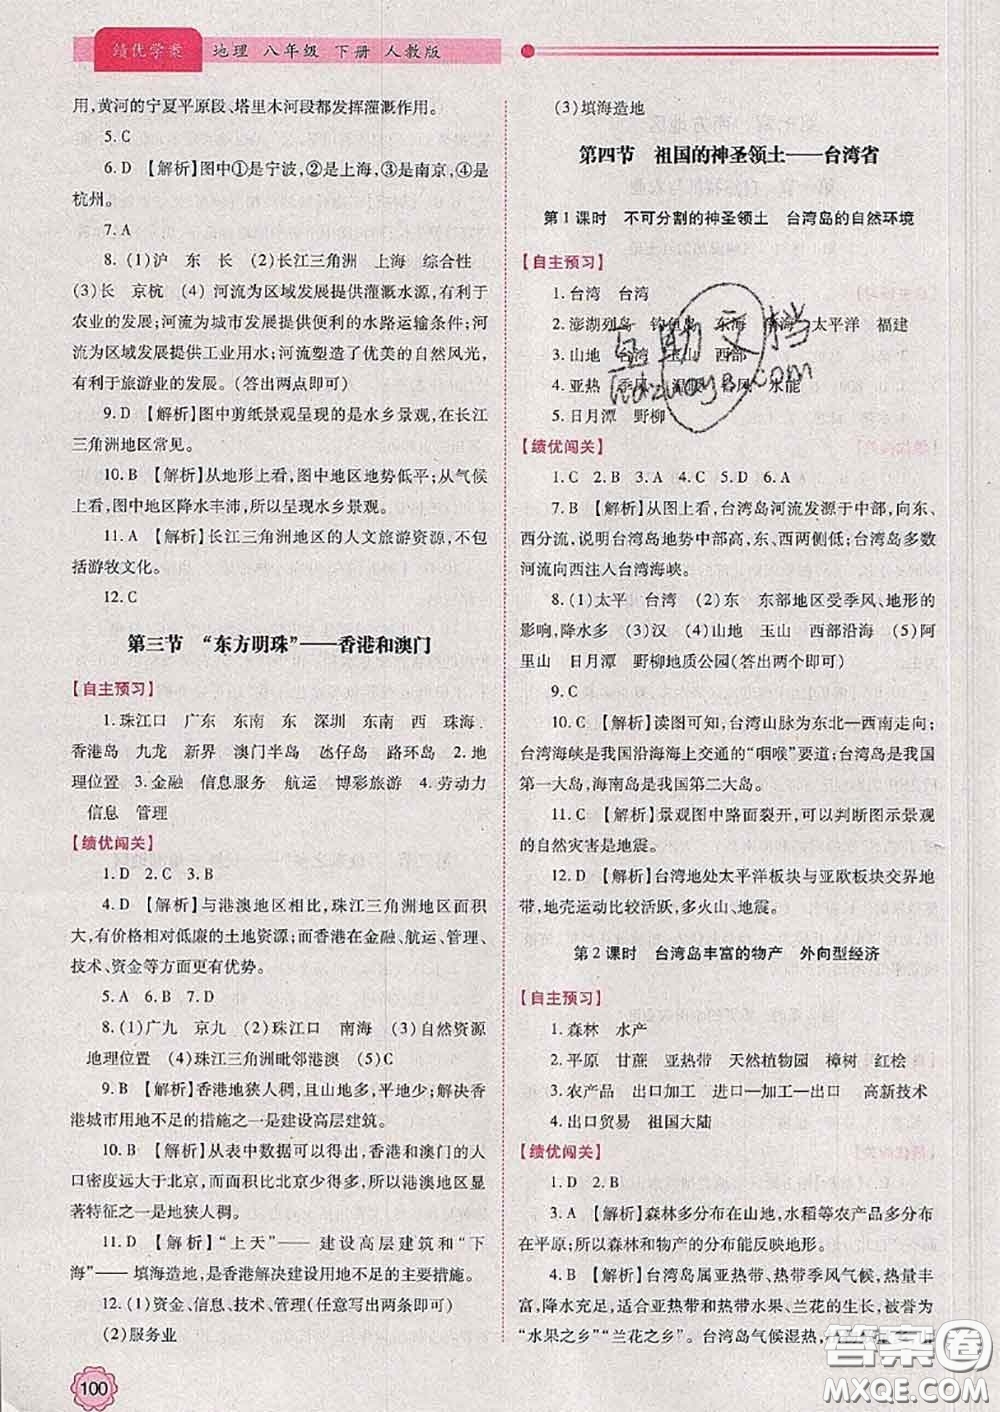 绩优学案 地理 八年级 下册 人教版
用,黄河的宁夏平原段、塔里木河段都发挥灌溉作用。
5. C
6. D 【解析】图中①是宁波,②是上海,③是南京,④是
杭州。
7. A
8. (1)沪 东 长 (2)长江三角洲 上海 综合性
(3)长 京杭 (4)河流为区域发展提供灌溉水源,有利于
农业的发展;河流为城市发展提供便利的水路运输条件;河
流为区域发展提供工业用水;河流塑造了优美的自然风光,
有利于旅游业的发展。(答出两点即可)
9. D 【解析】图中剪纸景观呈现的是水乡景观,在长江
三角洲地区常见。
10. B 【解析】从地形上看,图中地区地势低平;从气候
上看,图中地区降水丰沛,所以呈现水乡景观。
11. A 【解析】长江三角洲地区的人文旅游资源,不包
括游牧文化。
12. C
第三节 “东方明珠”——香港和澳门
【自主预习】
1. 珠江口 广东 东南 东 深圳 东南 西 珠海
香港岛 九龙 新界 澳门半岛 氹仔岛 路环岛 2. 地
理位置 3. 金融 信息服务 航运 博彩旅游 4. 劳动力
信息 管理
【绩优闯关】
1. D 2. C 3. B
4. D 【解析】与港澳地区相比,珠江三角洲地区面积
大,有价格相对低廉的土地资源;而香港在金融、航运、管理、
技术、资金等方面更有优势。
5. A 6. B 7. D
8. (1)广九 京九 (2)珠江口 南海 (3)自然资源
地理位置 (4)珠江三角洲毗邻港澳 (5)C
9. B 【解析】香港地狭人稠,且山地多,平地少;解决香
港城市用地不足的措施之一是建设高层建筑。
10. B 【解析】从表中数据可以得出,香港和澳门的人
口密度远大于北京,而面积比北京少得多,所以港澳地区显
著特征之一是地狭人稠。
11. D 【解析】“上天”—— 建设高层建筑和“下
海”—— 填海造地,是香港解决建设用地不足的主要措施。
12. (1)资金、信息、技术、管理(任意写出两条即可)
(2)服务业
100
(3)填海造地
第四节 祖国的神圣领土——台湾省
第 1 课时 不可分割的神圣领土 台湾岛的自然环境
【自主预习】
1. 台湾 台湾
2. 澎湖列岛 钓鱼岛 东海 南海 太平洋 福建
3. 山地 台湾 玉山 西部
4. 亚热 季风 温暖 台风 水能
5. 日月潭 野柳
【绩优闯关】
1. B 2. B 3. A 4. C 5. D 6. A
7. B 【解析】从图上看,台湾岛河流发源于中部,向东、
西分流,说明台湾岛地势中部高,东、西两侧低;台湾岛多数
河流向西注入台湾海峡。
8. (1)太平 台湾 (2)东 东部地区受季风、地形的
影响,降水多 (3)汉 (4)山地 玉山 西部沿海 (5)阿
里山 日月潭 野柳地质公园(答出两个即可)
9. C
10. C 【解析】读图可知,台湾山脉为东北—西南走向;
台湾海峡是我国沿海海上交通的“咽喉”要道;台湾岛是我国
第一大岛,海南岛是我国第二大岛。
11. C 【解析】景观图中路面裂开,可以判断图示景观
的自然灾害是地震。
12. D 【解析】台湾地处太平洋板块与亚欧板块交界地
带,地壳运动比较活跃,多火山、地震。
第 2 课时 台湾岛丰富的物产 外向型经济
【自主预习】
1. 森林 水产
2. 平原 甘蔗 亚热带 天然植物园 樟树 红桧
3. 农产品 出口加工 进口—加工—出口 高新技术
4. 出口贸易 祖国大陆
【绩优闯关】
1. D 2. B
3. A 【解析】森林多分布在山地,水稻等农产品多分布
在平原;所以森林和物产的分布能反映地形。
4. B 【解析】台湾岛属亚热带、热带季风气候,热量丰
富,降水充足,适合亚热带和热带水果、兰花的生长,被誉为
“水果之乡”“兰花之乡”。台湾岛气候湿热,
互助文档
hdzuoye.com
答案圈
MXQE.COM